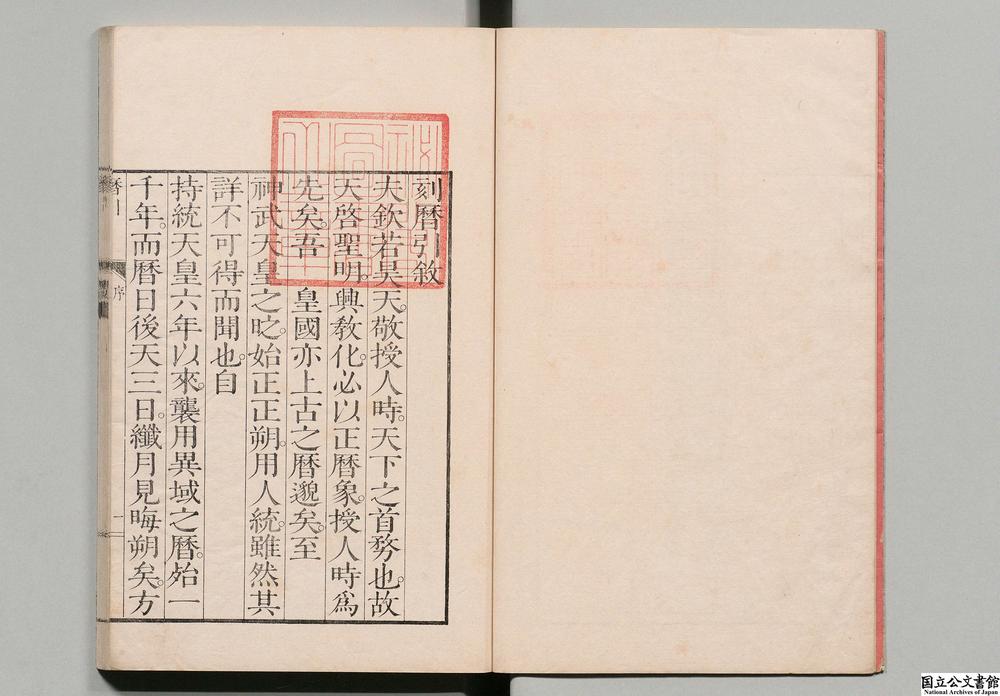 刻曆引敘
夫欽若昊天。敬授人時。天下之首務也。故
天啓聖明。興敎化。必以正曆象。授人時爲
先矣。吾 皇國亦上古之曆邈矣。至
神武天皇之昉。始正正朔。用人統。雖然其
詳不可得而聞也。自
持統天皇六年以來。襲用異域之曆。殆一
千年。而曆日後天三日。纖月見晦朔矣。方
序
一
国立公文書館
National Archives of Japan